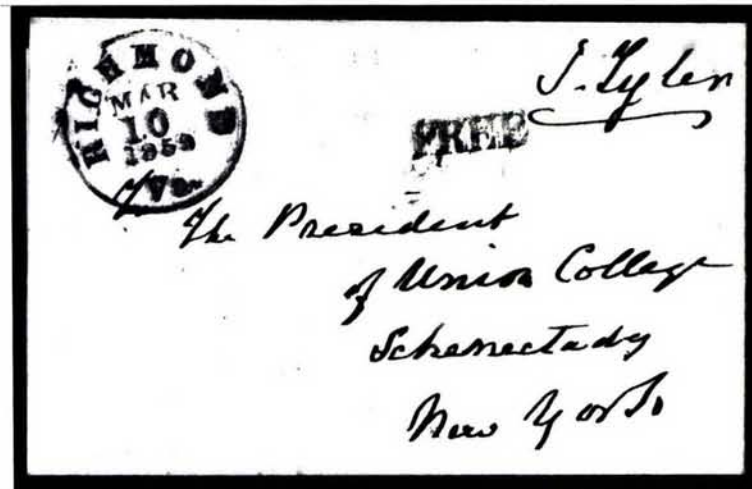 RICHMOND
MAR
10
1859
Va.
J. Tyler
FREE
To
The President
of Union College
Schenectady
New York